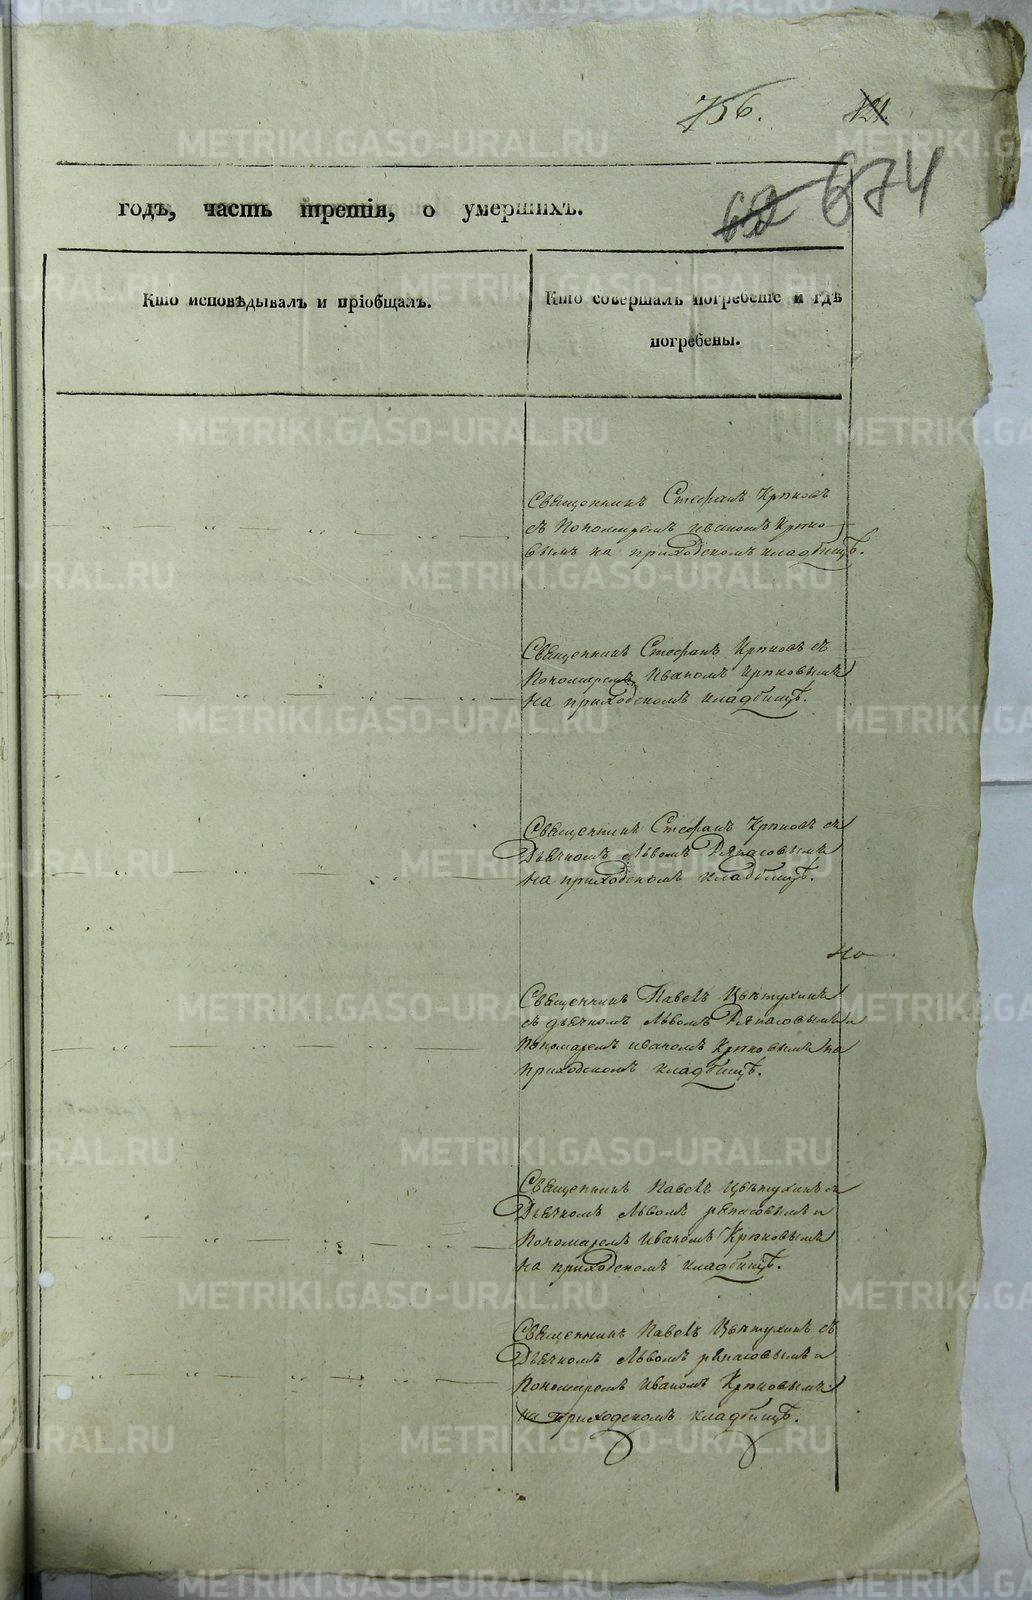 756. 121.
62 674
годъ, часть третія, о умершихъ.
Кто исповѣдывалъ и пріобщалъ.
Кто совершалъ погребеніе и гдѣ
погребены.
Священникъ Стефанъ Крюковъ
съ Пономаремъ Иваномъ Крюко-
вымъ на приходскомъ кладбищѣ.
Священникъ Стефанъ Крюковъ съ
Пономаремъ Иваномъ Крюковымъ
на приходскомъ кладбищѣ.
Священникъ Стефанъ Крюковъ съ
Дьячкомъ Львомъ
на приходскомъ кладбищѣ.
Священникъ Павелъ Цвѣтухинъ
съ дьячкомъ Львомъ и
пономаремъ Иваномъ Крюковымъ на
приходскомъ кладбищѣ.
Священникъ Павелъ Цвѣтухинъ съ
Дьячкомъ Львомъ и
Пономаремъ Иваномъ Крюковымъ
на приходскомъ кладбищѣ.
Священникъ Павелъ Цвѣтухинъ съ
Дьячкомъ Львомъ и
Пономаремъ Иваномъ Крюковымъ
на приходскомъ кладбищѣ.
METRIKI.GASO-URAL.RU